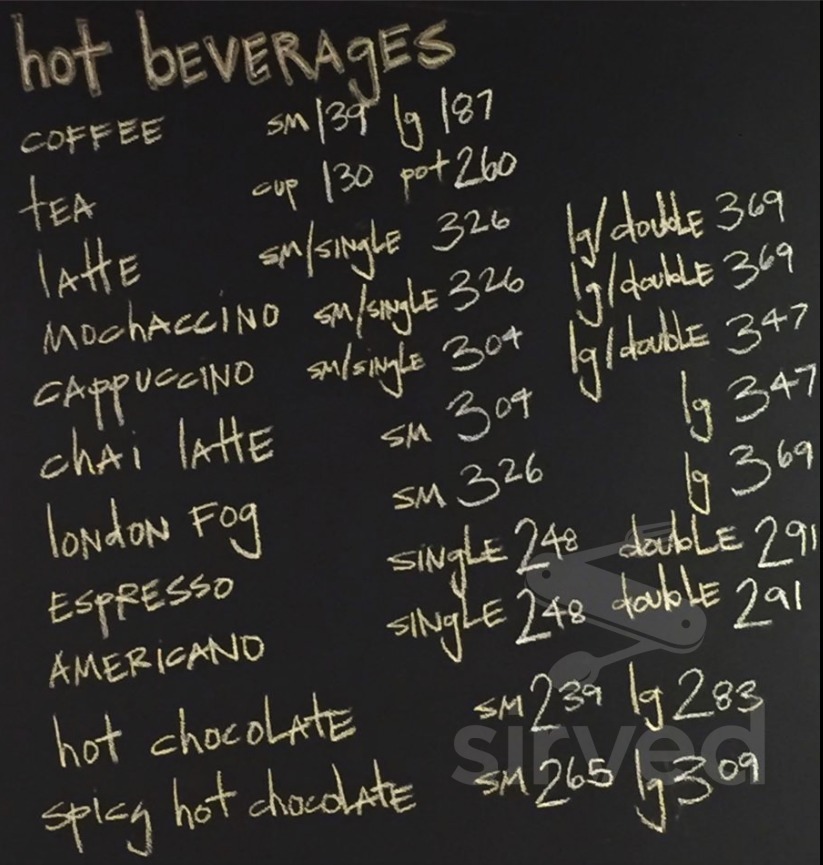 hot bEVERAgES
COFFEE sm 139 lg 187
tEA cup 130 pot 260
lAttE sm/siNglE 326 lg/doublE 369
MochACCiNO sm/siNglE 326 lg/doublE 369
CAppUCCiNO sm/siNglE 304 lg/doublE 347
chAi lAttE sm 304 lg 347
loNdoN Fog sm 326 lg 369
ESpRESSO siNglE 248 doublE 291
AMERiCANO siNglE 248 doublE 291
hot chocolAtE sm 239 lg 283
spicy hot chocolAtE sm 265 lg 309
sirved